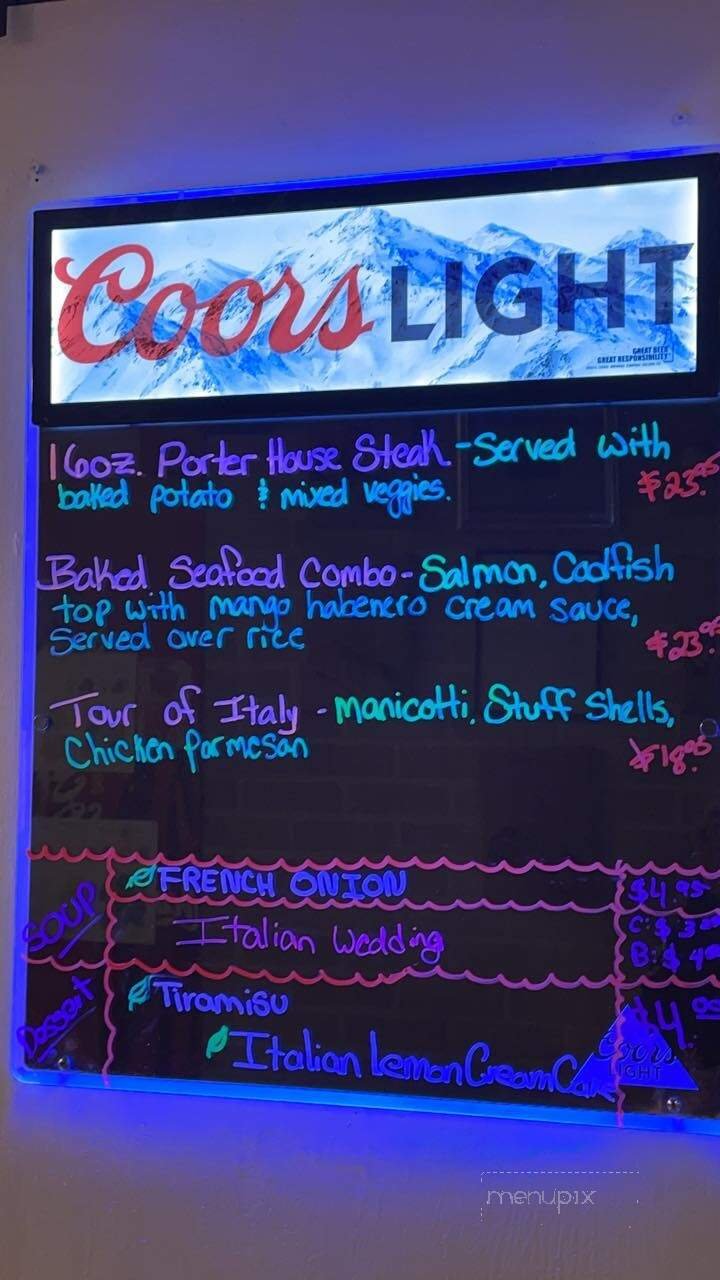 Coors LIGHT
GREAT BEER
GREAT RESPONSIBILITY
16oz. Porter House Steak - Served with
baked potato & mixed veggies.
$23.95
Baked Seafood Combo - Salmon, Codfish
top with mango habenero cream sauce,
Served over rice
$23.95
Tour of Italy - Manicotti, Stuff Shells,
Chicken Parmesan
$18.95
SOUP
FRENCH ONION
$4.95
Italian Wedding
C: $
B: $
Dessert
Tiramisu
$4.95
Italian Lemon Cream Cake
Coors
LIGHT
menupix